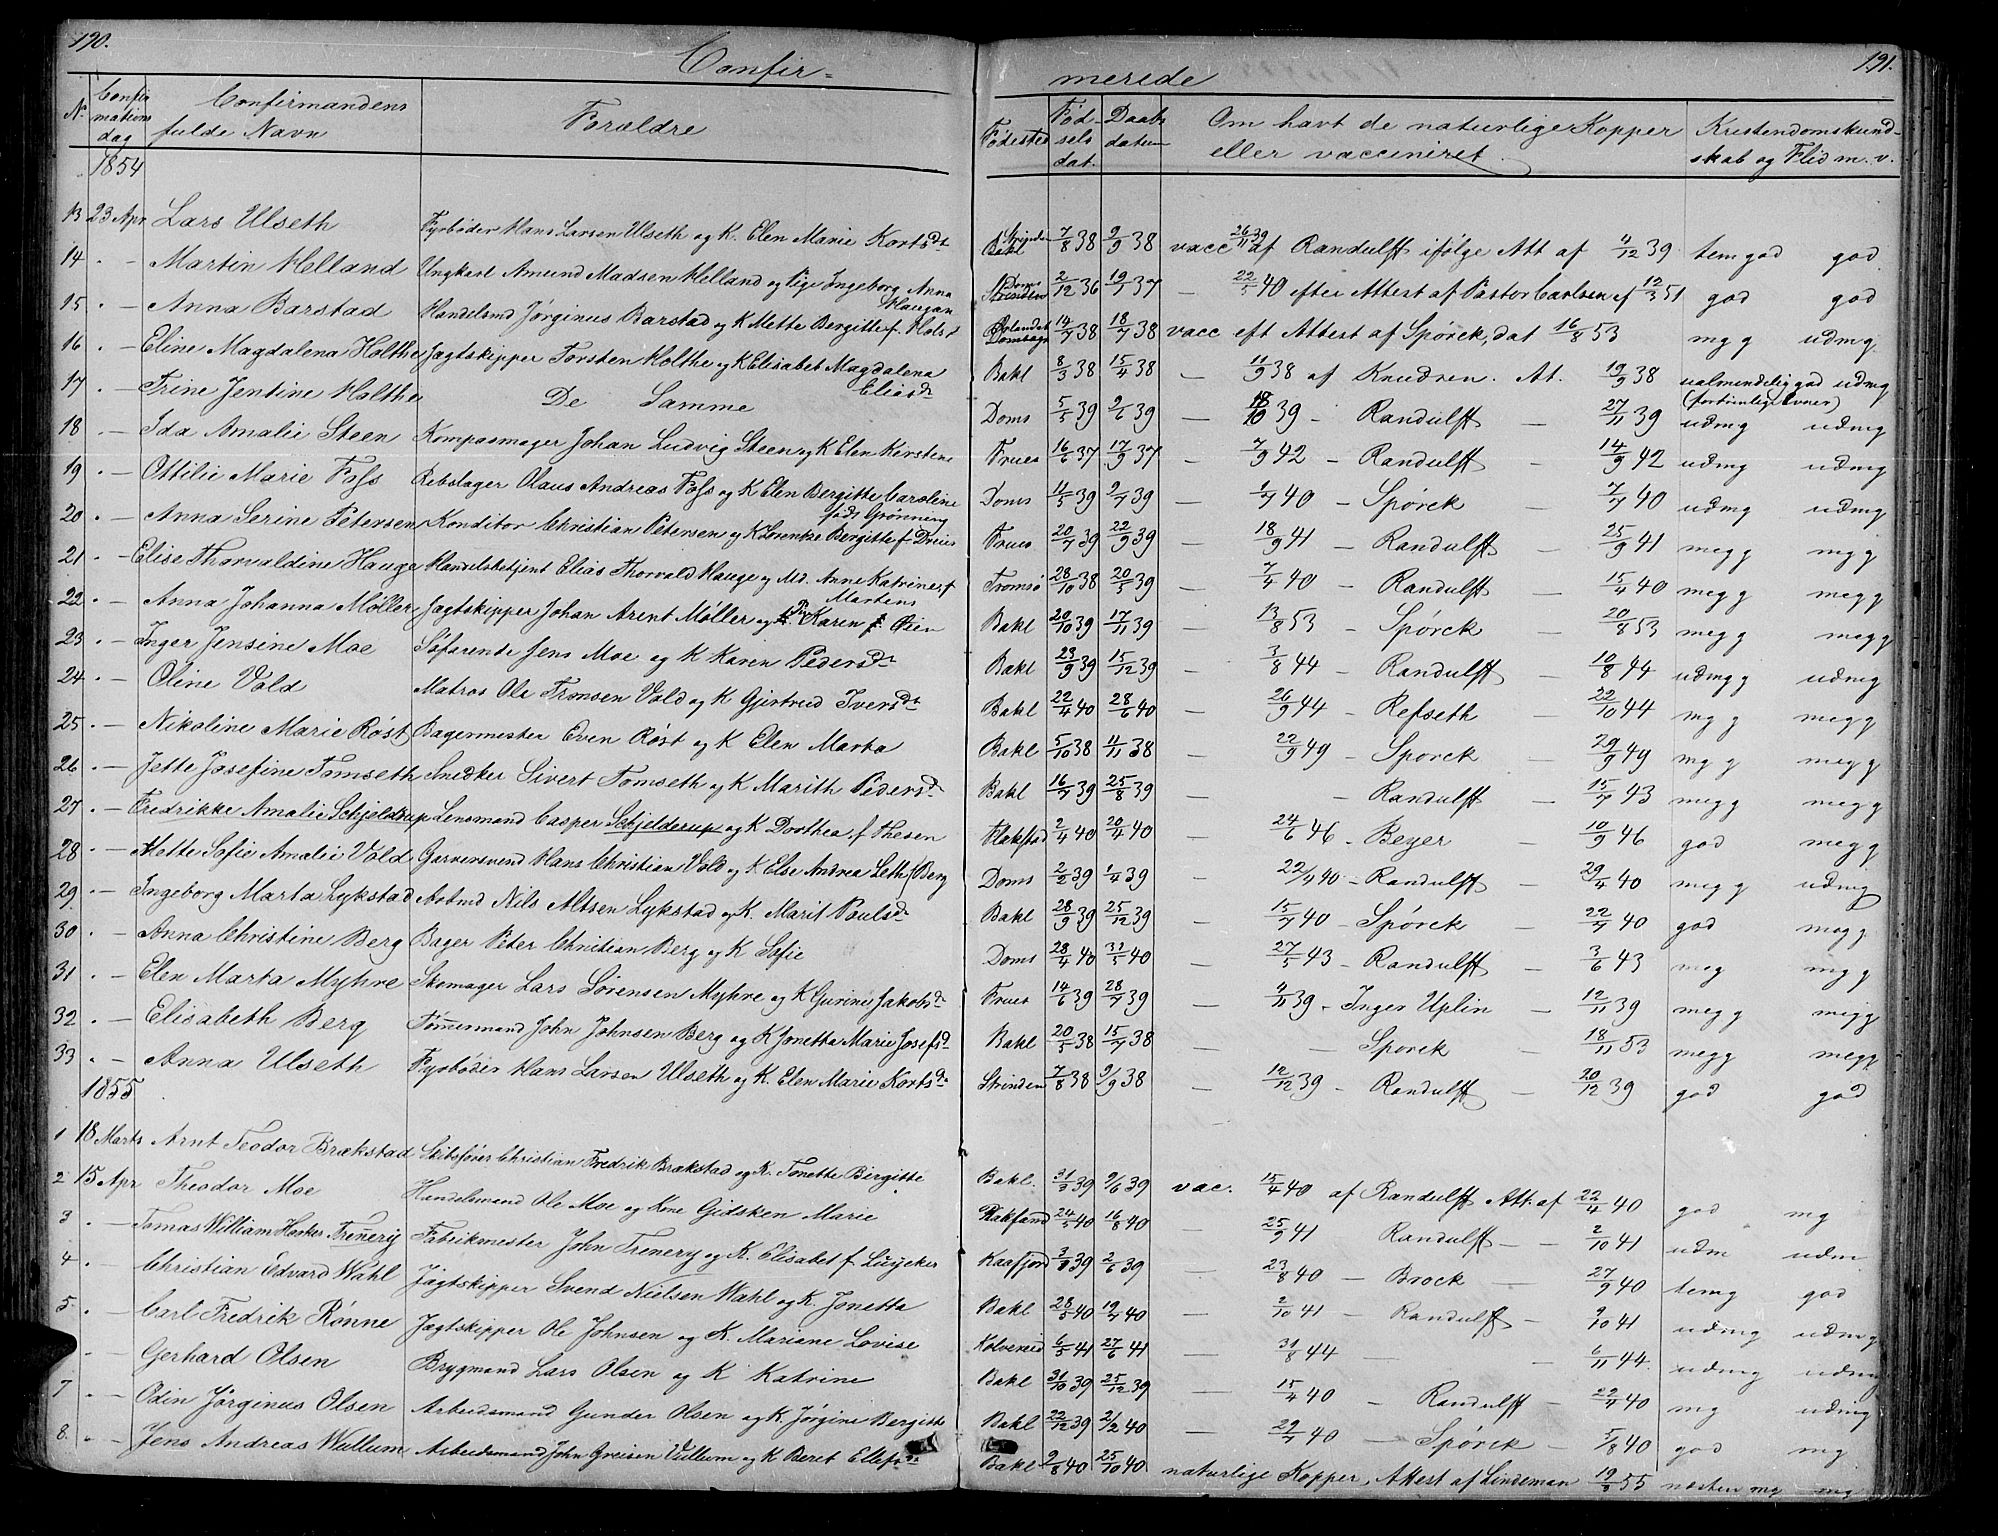 190.
Confir=
N. Confirmations dag
Confirmandens fulde Navn
Forældre
1854
13 23 Apr Lars Ulseth Fyrbøder Hans Larsen Ulseth og K. Elen Marie Kortsdr
14 . — Martin Helland Ungkarl Amund Madsen Helland og Pige Ingeborg Anna Haugan
15 . — Anna Barstad Handelsmd Jørginus Barstad og K Mette Bergitte f. Holst
16 . — Eline Magdalena Holthe Jagtskipper Torsten Holthe og K Elisabet Magdalena Eliasdr
17 . — Trine Jentine Holthe De Samme
18 . — Ida Amalie Steen Kompasmager Johan Ludvig Steen og K Elen Kirstine
19 . — Ottilie Marie Foss Rebslager Olaus Andreas Foss og K Elen Bergitte Caroline føds Grønneng
20 . — Anna Serine Petersen Konditor Christian Petersen og K Lorentze Bergitte f. Dreies
21 . — Elise Thorvaldine Hauge Handelsbetjent Elias Thorvald Hauge og Md. Anne Katrine f Martens
22 . — Anna Johanna Møller Jagtskipper Johan Arent Møller og Karen Øien
23 . — Inger Jensine Moe Søfarende Jens Moe og K Karen Pedersdr
24 . — Oline Vold Matros Ole Tronsen Vold og K Gjertrud Iversdr
25 . — Nikoline Marie Røst Bagermester Even Røst og K Elen Marta
26 . — Jette Josefine Tomseth Snedker Sivert Tomseth og K Marith Pedersd.
27 . — Fredrikke Amalie Schjeldrup Lensmand Casper Schjelderup og K Dorthea f Thesen
28 . — Mette Sofie Amalie Vold Garversvend Hans Christian Vold og K Else Andrea Seth (Berg
29 . — Ingeborg Marta Lykstad Arbmd Nils Altsen Lykstad og K. Marit Poulsd.
30 . — Anna Christine Berg Bager Peter Christian Berg og K Sofie
31 . — Elen Marta Myhre Skomager Lars Sørensen Myhre og K Gurine Jakobsd.
32 . — Elisabeth Berg Tømmermand John Johnsen Berg og K Jonetta Marie Josefsd.
33 . — Anna Ulseth Fyrbøder Hans Larsen Ulseth og K. Elen Marie Kortsd.
1855
1 18 Marts Arnt Teodor Brækstad Skibsfører Christian Fredrik Brækstad og K. Tonette Birgitte
2 15 Apr Theodor Moe Handelsmand Ole Moe og Kone Gidsken Marie
3 . — Tomas William Hooker Trenery Fabrikmester John Trenery og K. Elisabet f
4 . — Christian Edvard Wahl Jagtskipper Svend Nielsen Wahl og K. Jonetta
5 . — Carl Fredrik Rønne Jagtskipper Ole Johnsen og K. Mariane Lovise
. — Gerhard Olsen Brygmand Lars Olsen og K Katrine
7 . — Odin Jørginus Olsen Arbeidsmand Gunder Olsen og K. Jørgine Bergitte
8. . — Jens Andreas Wullum Arbeidsmand John Greisen Vullum og K Beret Ellefsdr
191.
merede
Fødested
Fødselsdat.
Daabsdatum
Om havt de naturlige Kopper eller vaccineret.
Kristendomskundskab og Flid m. v.
Strinden 7/8 38 9/9 38 vacc 26/11 39 af Randulff ifølge Att af 11/12 39 temgod god
Doms 2/12 36 19/1 37 — 22/5 40 efter Attest af Pastor Carlsen af 12/3 51 god god
Ørlandet 14/7 38 18/7 38 vacc eft Attest af Spørck, dat 16/8 53 mg g udmg
Bakl 8/3 38 15/4 38 — 11/9 38 af Knudren. At. 19/9 38 ualmindelig god udmg (fortrinlige Evner)
Doms 5/5 39 2/6 39 — 18/10 39 — Randulff — 27/11 39 udmg udmg
Frues 16/6 37 17/9 37 — 7/9 42 — Randulff — 14/9 42 udmg udmg
Doms 11/5 39 2/7 39 — 1/7 40 — Spørck — 7/7 40 udmg udmg
Frues 20/7 39 22/9 39 — 18/9 41 — Randulff — 25/9 41 meg g mg g
Tromsø 28/10 38 20/5 39 — 7/4 40 — Randulff — 15/4 40 meg g meg g
Bakl 20/10 39 17/11 39 — 13/8 53 — Spørck — 20/8 53 meg g meg g
Bakl 23/9 39 15/12 39 — 3/8 44 — Randulff — 10/8 44 udmg g udmg
Bakl 22/4 40 28/6 40 — 26/9 44 — Refseth — 22/10 44 mg g meg g
Bakl 5/10 38 11/11 38 — 22/9 49 — Sporck — 29/9 49 mg g meg g
Bakl 16/7 39 25/8 39 — — Randulff — 15/7 43 meg g meg g
Flakstad 2/4 40 20/4 40 — 24/6 46 — Beyer — 10/9 46 god meg g
Doms 2/2 39 1/4 39 — 22/4 40 — Randulff — 29/4 40 meg g udmg
Bakl 28/9 39 25/12 39 — 15/7 40 — Spørck — 22/7 40 god meg g
Doms 28/4 40 31/5 40 — 27/5 43 — Randulff — 3/6 43 meg mg g
Frues 14/6 39 28/7 39 — 4/11 39 — Inger Uplin — 12/11 39 meg g megg
Bakl 20/5 38 15/7 38 — — Sporck — 18/11 53 megg megg
Strinden 7/8 38 9/9 38 — 12/12 39 — Randulff — 20/12 39 god god
Bakl. 31/3 39 9/6 39 vac. 15/4 40 af Randulff Att. af 22/4 40 god mg
24/5 40 16/8 40 — 25/9 41 Randulff — — 2/10 41 udm udm
Kaafjord 3/3 39 2/6 39 — 23/8 40 — Brock — 27/9 40 temg god
Bakl 28/5 40 19/7 40 — 2/10 41 — Randulff — 9/10 41 udmg udmg
Kolvereid 6/5 41 27/6 41 — 31/8 44 — — 6/11 44. udmg udmg
Bakl 31/10 39 25/12 39 — 15/4 40 — Randulff — 22/4 40 mg udmg
Bakl 22/12 39 2/2 40 — 29/7 40 — Spørck — 5/8 40 god mg
Bakl 9/8 40 25/10 40 naturlige Kopper, Attest af Lindeman 19/3 55 næsten mg mg